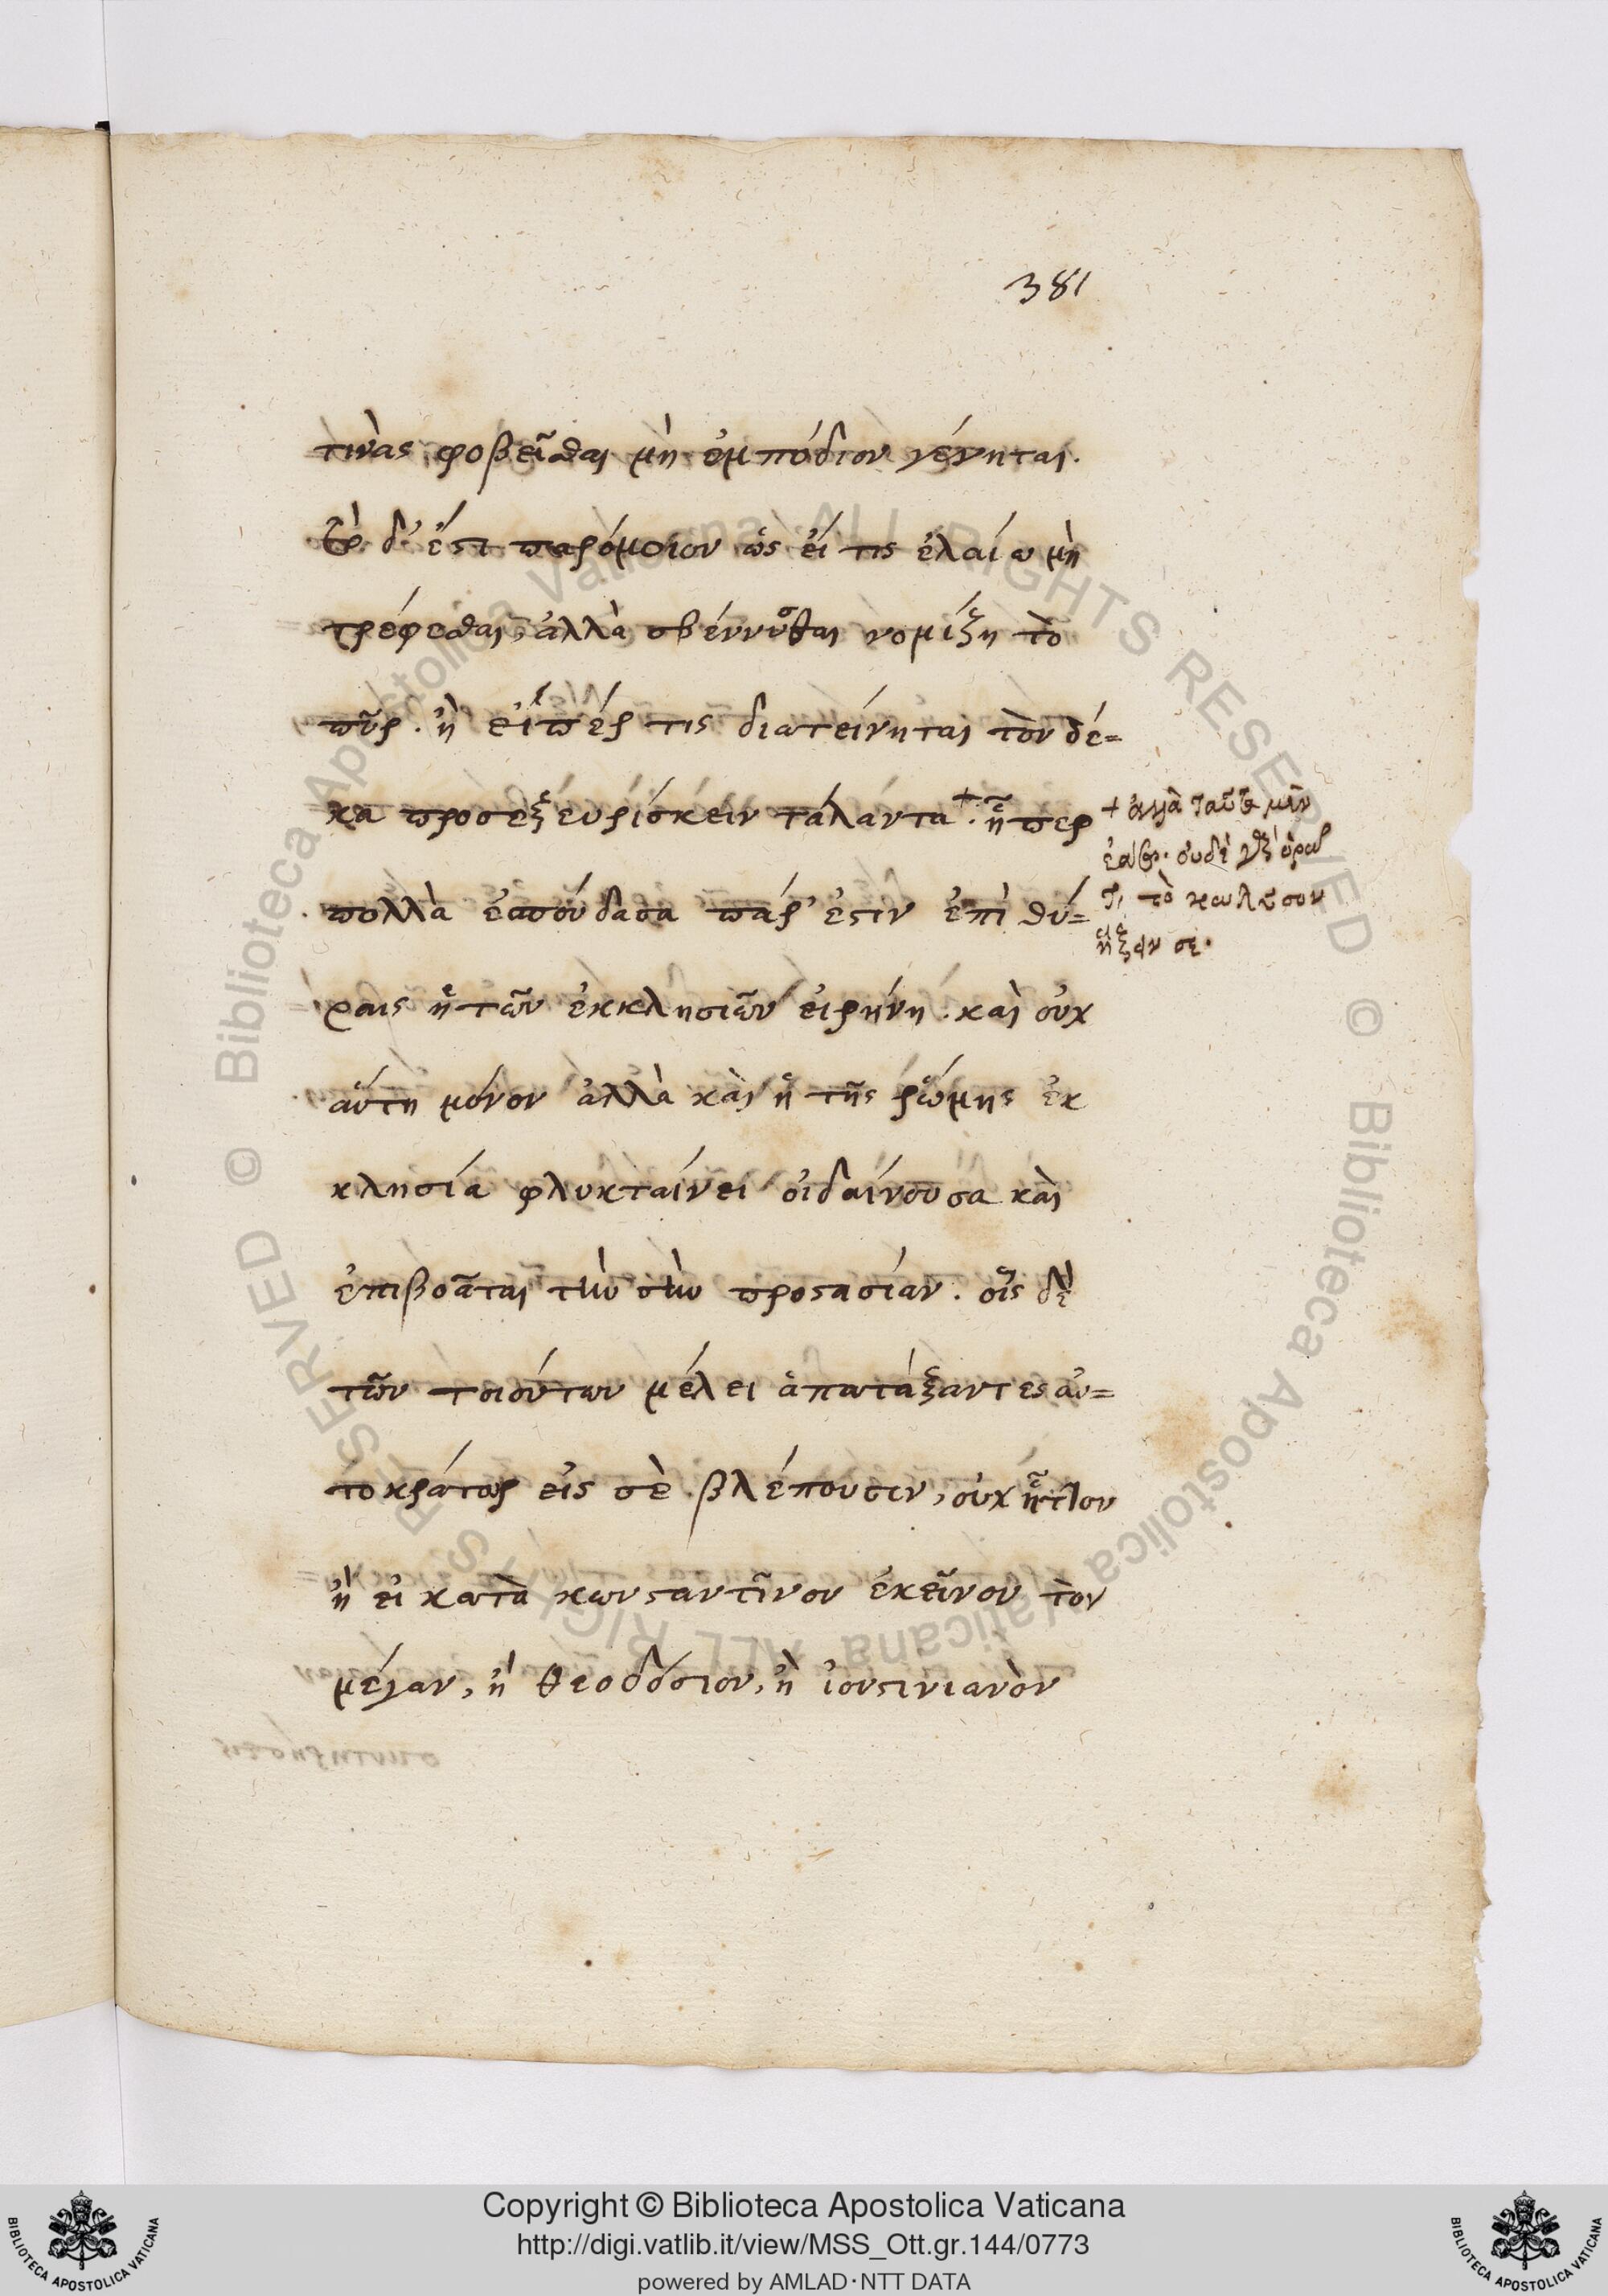 381
τινὰς φοβεῖσθαι μὴ ἐμπόδιον γένηται.
τὸ δ' ἔστι παρόμοιον ὡς εἴ τις ἐλαίω μὴ
τρέφεσθαι, ἀλλὰ σβέννυσθαι νομίζη τὸ
πῦρ. ἢ εἴπέρ τις διατείνηται τὸν δέ=
κα προσεξευρίσκειν τάλαντα + ἥπερ
πολλὰ ἐσπούδασα πάρ' ἐστιν ἐπὶ θύ=
ραις ἡ τῶν ἐκκλησιῶν εἰρήνη. καὶ οὐχ
αὕτη μόνον ἀλλὰ καὶ ἡ τῆς ῥώμης ἐκ
κλησία φλυκταίνει οἰδαίνουσα καὶ
ἐπιβοᾶται τὴν σὴν προστασίαν. οἷς δὲ
τῶν τοιούτων μέλει ἁπατάξαντες αὐ=
τοκράτορ εἰς σὲ βλέπουσιν, οὐχ ἧττον
ἢ εἰ κατὰ κωνσταντῖνον ἐκεῖνον τὸν
μέγαν, ἢ θεοδόσιον, ἢ ἰουστινιανὸν
+ ἀλλὰ ταῦτα μὲν
οὐδὲ
τι τὸ κωλῦσον
Copyright © Biblioteca Apostolica Vaticana
http://digi.vatlib.it/view/MSS_Ott.gr.144/0773
powered by AMLAD·NTT DATA
BIBLIOTECA APOSTOLICA VATICANA
BIBLIOTECA APOSTOLICA VATICANA
© Biblioteca Apostolica Vaticana ALL RIGHTS RESERVED
© Biblioteca Apostolica Vaticana ALL RIGHTS RESERVED